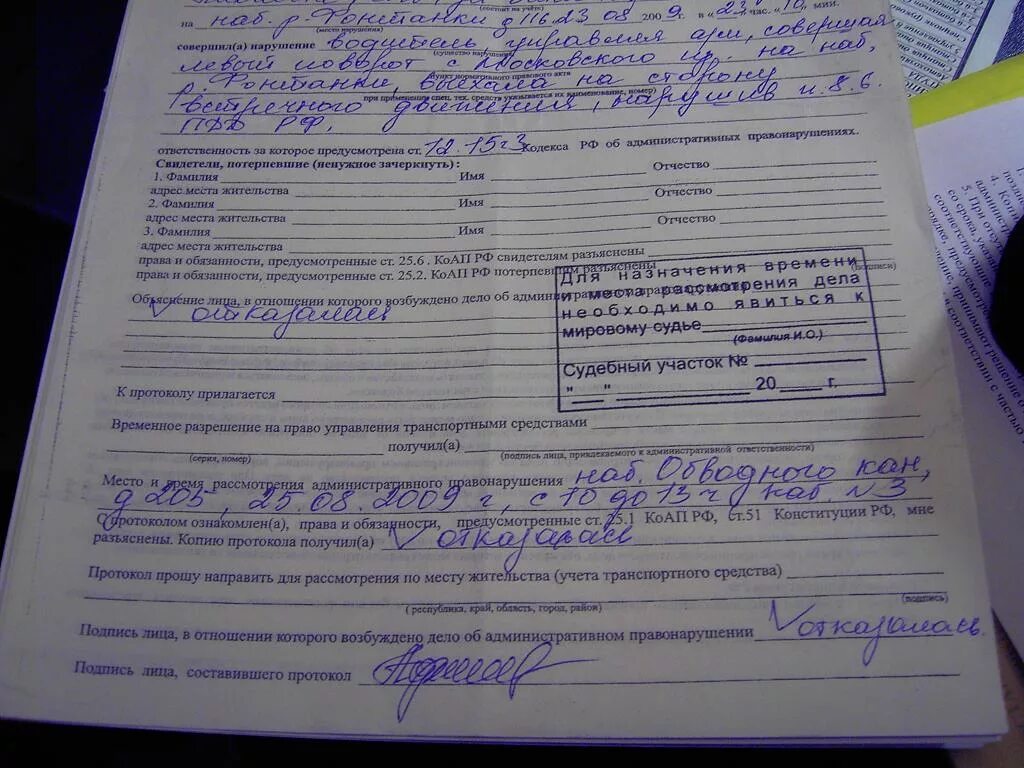 (состоит на учёте)
на наб. р. Фонтанки д 116. 23 08 2009 г. в "23" час. "10" мин.
(место нарушения)
совершил(а) нарушение водитель, управляя а/м, совершая
(существо нарушения,
левый поворот с Московского пр. на наб.
пункт нормативного правового акта
р. Фонтанки, выехала на сторону
при применении спец. тех. средств указывается их наименование, номер)
встречного движения, нарушив п. 8.6.
ПДД РФ.
ответственность за которое предусмотрена ст. 12.15 ч 3 Кодекса РФ об административных правонарушениях.
Свидетели, потерпевшие (ненужное зачеркнуть) :
1. Фамилия Имя Отчество
адрес места жительства
2. Фамилия Имя Отчество
адрес места жительства
3. Фамилия Имя Отчество
адрес места жительства
права и обязанности, предусмотренные ст. 25.6 . КоАП РФ свидетелям разъяснены
права и обязанности, предусмотренные ст. 25.2. КоАП РФ потерпевшим разъяснены
(подписи)
Объяснение лица, в отношении которого возбуждено дело об административном правонарушении
отказалась
Для назначения времени
и места рассмотрения дела
необходимо явиться к
мировому судье
(Фамилия И.О.)
Судебный участок №
"__" 20 г.
К протоколу прилагается
Временное разрешение на право управления транспортными средствами
получил(а)
(серия, номер) (подпись лица, привлекаемого к административной ответственности)
Место и время рассмотрения административного правонарушения наб. Обводного кан,
д 205, 25.08.2009 г, с 10 до 13 ч каб. N 3
С протоколом ознакомлен(а), права и обязанности, предусмотренные ст.25.1 КоАП РФ, ст.51 Конституции РФ, мне
разъяснены. Копию протокола получил(а) отказалась
Протокол прошу направить для рассмотрения по месту жительства (учета транспортного средства)
( республика, край, область, город, район) (подпись)
Подпись лица, в отношении которого возбуждено дело об административном правонарушении отказалась.
Подпись лица, составившего протокол